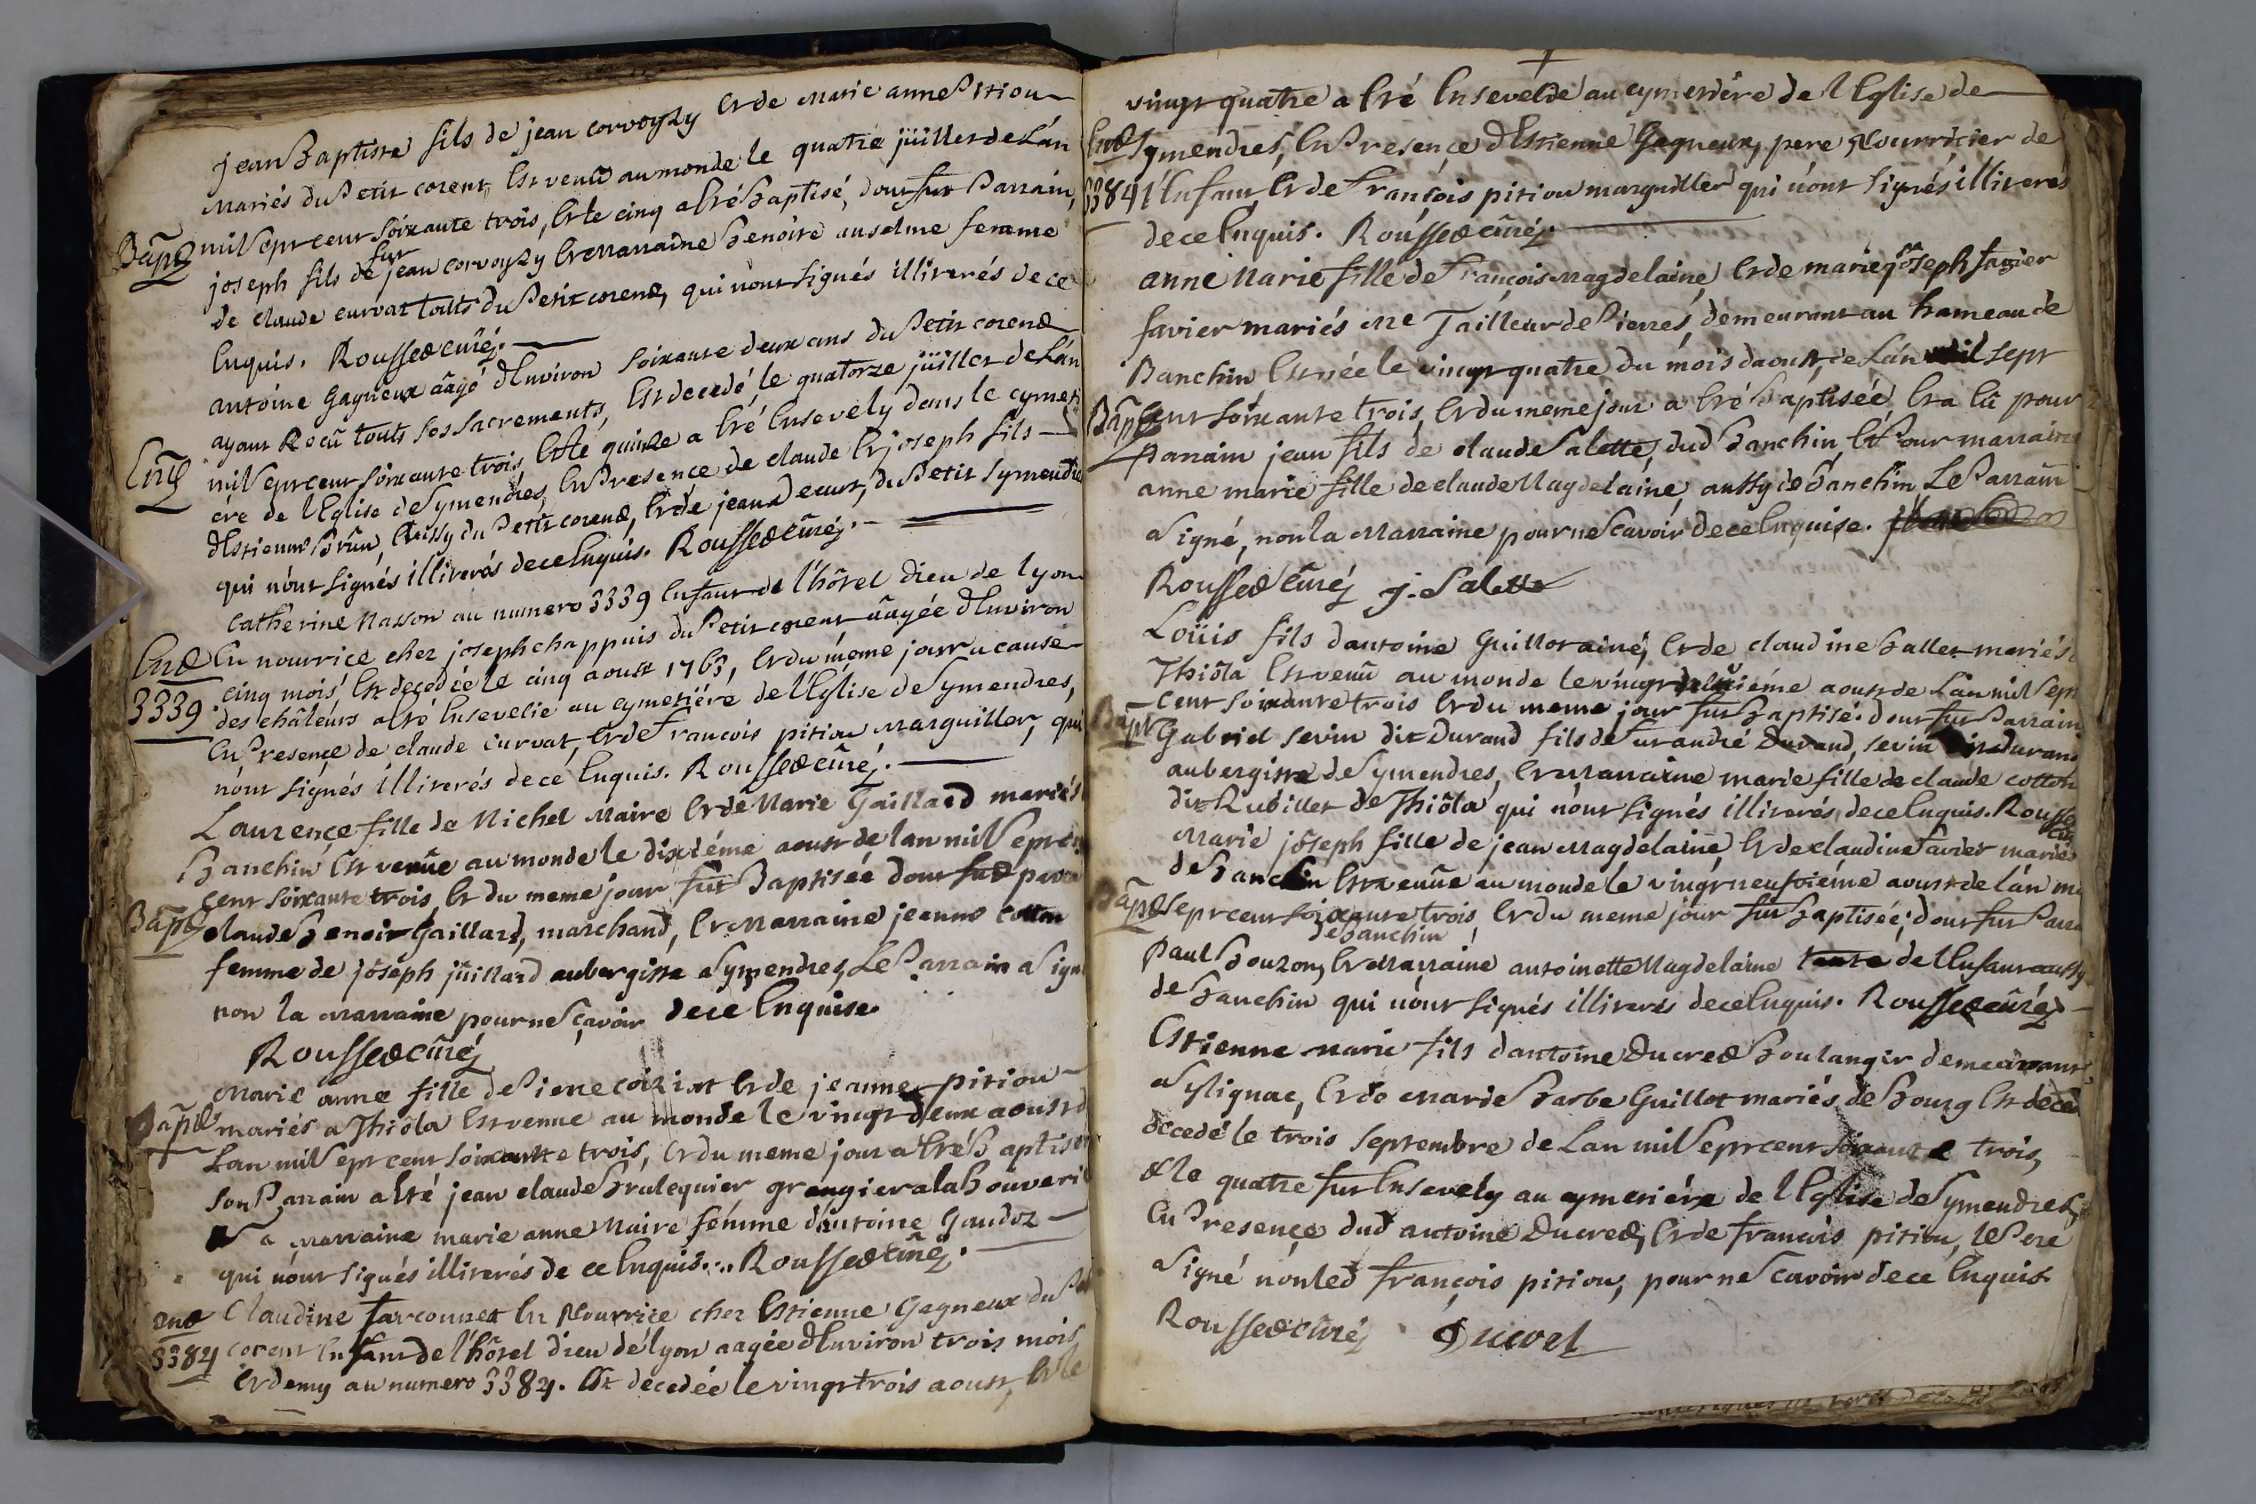 jean Baptiste fils de jean corvoyzy Et de marie anne Pitiou
mariés du Petit corent, Est venû au monde le quatre juillet de Lán
Bapt mil sept cent soixante trois, Et le cinq a Eté Baptisé, dont fut Parrain,
joseph fils de fut jean corvoyzy Et Marraine Benoite anselme femme
de claude curvat touts du Petit corend, qui n'ont signés illiterés de ce
Enquis. Roussed curé.
antoine Gagneux aâgé d'Environ soixante deux ans du Petit corend
ayant Recû touts ses sacrements, Est decedé, le quatorze juillet de Lán
Ent mil sept cent soixante trois, Et le quinze a Eté Ensevely dans le cymeti
ére de l'Eglise de Symendres, En Presence de claude Et joseph fils
d'Estienne Brûn, Aussy du Petit corend, Et de jean decurt, du Petit Symendre
qui n'ont signés illiterés de ce Enquis. Roussed curé.
Catherine Masson au numero 3339 Enfant de l'hôtel Dieu de lyon
End En nourrice chez joseph chappuis du Petit corent aâgée d'Environ
3339 cinq mois, Est decedée le cinq aoust 1763, Et du même jour a cause
des châleurs a Eté Ensevelie au cymetiére de l'Eglise de Symendres,
En Presence de claude Curvat, Et de francois pitiou Marguiller, qui
n'ont signés illiterés de ce Enquis. Roussed curé.
Laurence fille de Michel Maire Et de Marie Gaillard mariés
Banchin Est venûe au monde le dixiéme aoust de lan mil sept
cent soixante trois, Et du meme jour fut Baptisée dont fud parra
Bapt claude Benoit Gaillard, marchand, Et Marraine jeanne cotton
femme de jôseph juillard aubergiste a Symendres, Le Parrain a signé
non la Marraine pour ne sçavoir de ce Enquise.
Roussed curé
Marie anne fille de Pierre coiziat Et de jeanne pitiou
Bapt mariés a Thiôla Est venue au monde le vingt deux aoust d
Lan mil sept cent soixante trois, Et du meme jour a Eté Baptisé
son Parrain a Eté jean claude Brulequier grangier a la Bouveri
La Marraine marie anne Maire femme d'antoine Gaudoz
qui n'ont signés illiterés de ce Enquis... Roussed curé.
End Claudine farconnet En Nourrice chez Estienne Gagneux du Pet
3384 corent Enfant de l'hôtel dieu de lyon aagée d'Environ trois mois
Et demy au numero 3384. Est decedée le vingt trois aoust, Et le
vingt quatre a Eté Ensevelie au cymetiére de l'Eglise de
End Symendres, En Presence d'Estienne Gagneux, pere Nourricier de
3384 l'Enfant, Et de francois pitiou marguiller qui n'ont signés illiteres
de ce Enquis. Roussed curé.
anne Marie fille de francois Magdelaine, Et de marie jôseph favier
favier mariés Me Tailleur de Pierres, demeurant au hameau de
Banchin Est née le vingt quatre du mois daoust, de Lán mil sept
Bapt cent soixante trois, Et du meme jour a Eté Baptisée, Et a Eû pour
parrain jean fils de claude Salette, dud Banchin, Et Pour marraine
anne marie fille de claude Magdelaine, aussy de Banchin Le Parrain
a signé, non la Marraine pour ne scavoir de ce Enquise.
Roussed Curé j. Salette
Loüis fils dantoine Guillot ainé, Et de claudine Ballet mariés a
Thiôla Est venû au monde le vingt aoust de Lan mil sept
cent soixante trois Et du meme jour fut Baptisé. dont fut Parrain
Bapt Gabriel sevin dit Durand fils de fut andré Durand, sevin dit durand
aubergiste de Symendres, Et Marraine marie fille de claude cotton
dit Rubillet de Thiôla qui n'ont signés illiterés, de ce Enquis. Roussed
curé
Marie jôseph fille de jean Magdelaine, Et de claudine favier mariés
de Banchin Est venûe au monde le vingt neufviéme aoust de lán mi
Bapt sept cent soixante trois, Et du meme jour fut Baptisée; dont fut Parra
de Banchin
Paul Bouzon, Et Marraine antoinette Magdelaine tante de l'Enfant aussy
de Banchin qui n'ont signés illiterés de ce Enquis. Roussed curé
Estienne marie fils dantoine Ducred Boulanger demeurant
a Sylignac, Et de Marie Barbe Guillot mariés de Bourg Est deced
decedé le trois septembre de Lan mil sept cent soixante trois,
& le quatre fut Ensevely au cymetiére de l'Eglise de Symendres,
En Presence dud antoine Ducred, Et de francois pitiou, le Pere
a signé non led françois pitiou, pour ne scavoir de ce Enquis
Roussed curé Ducret